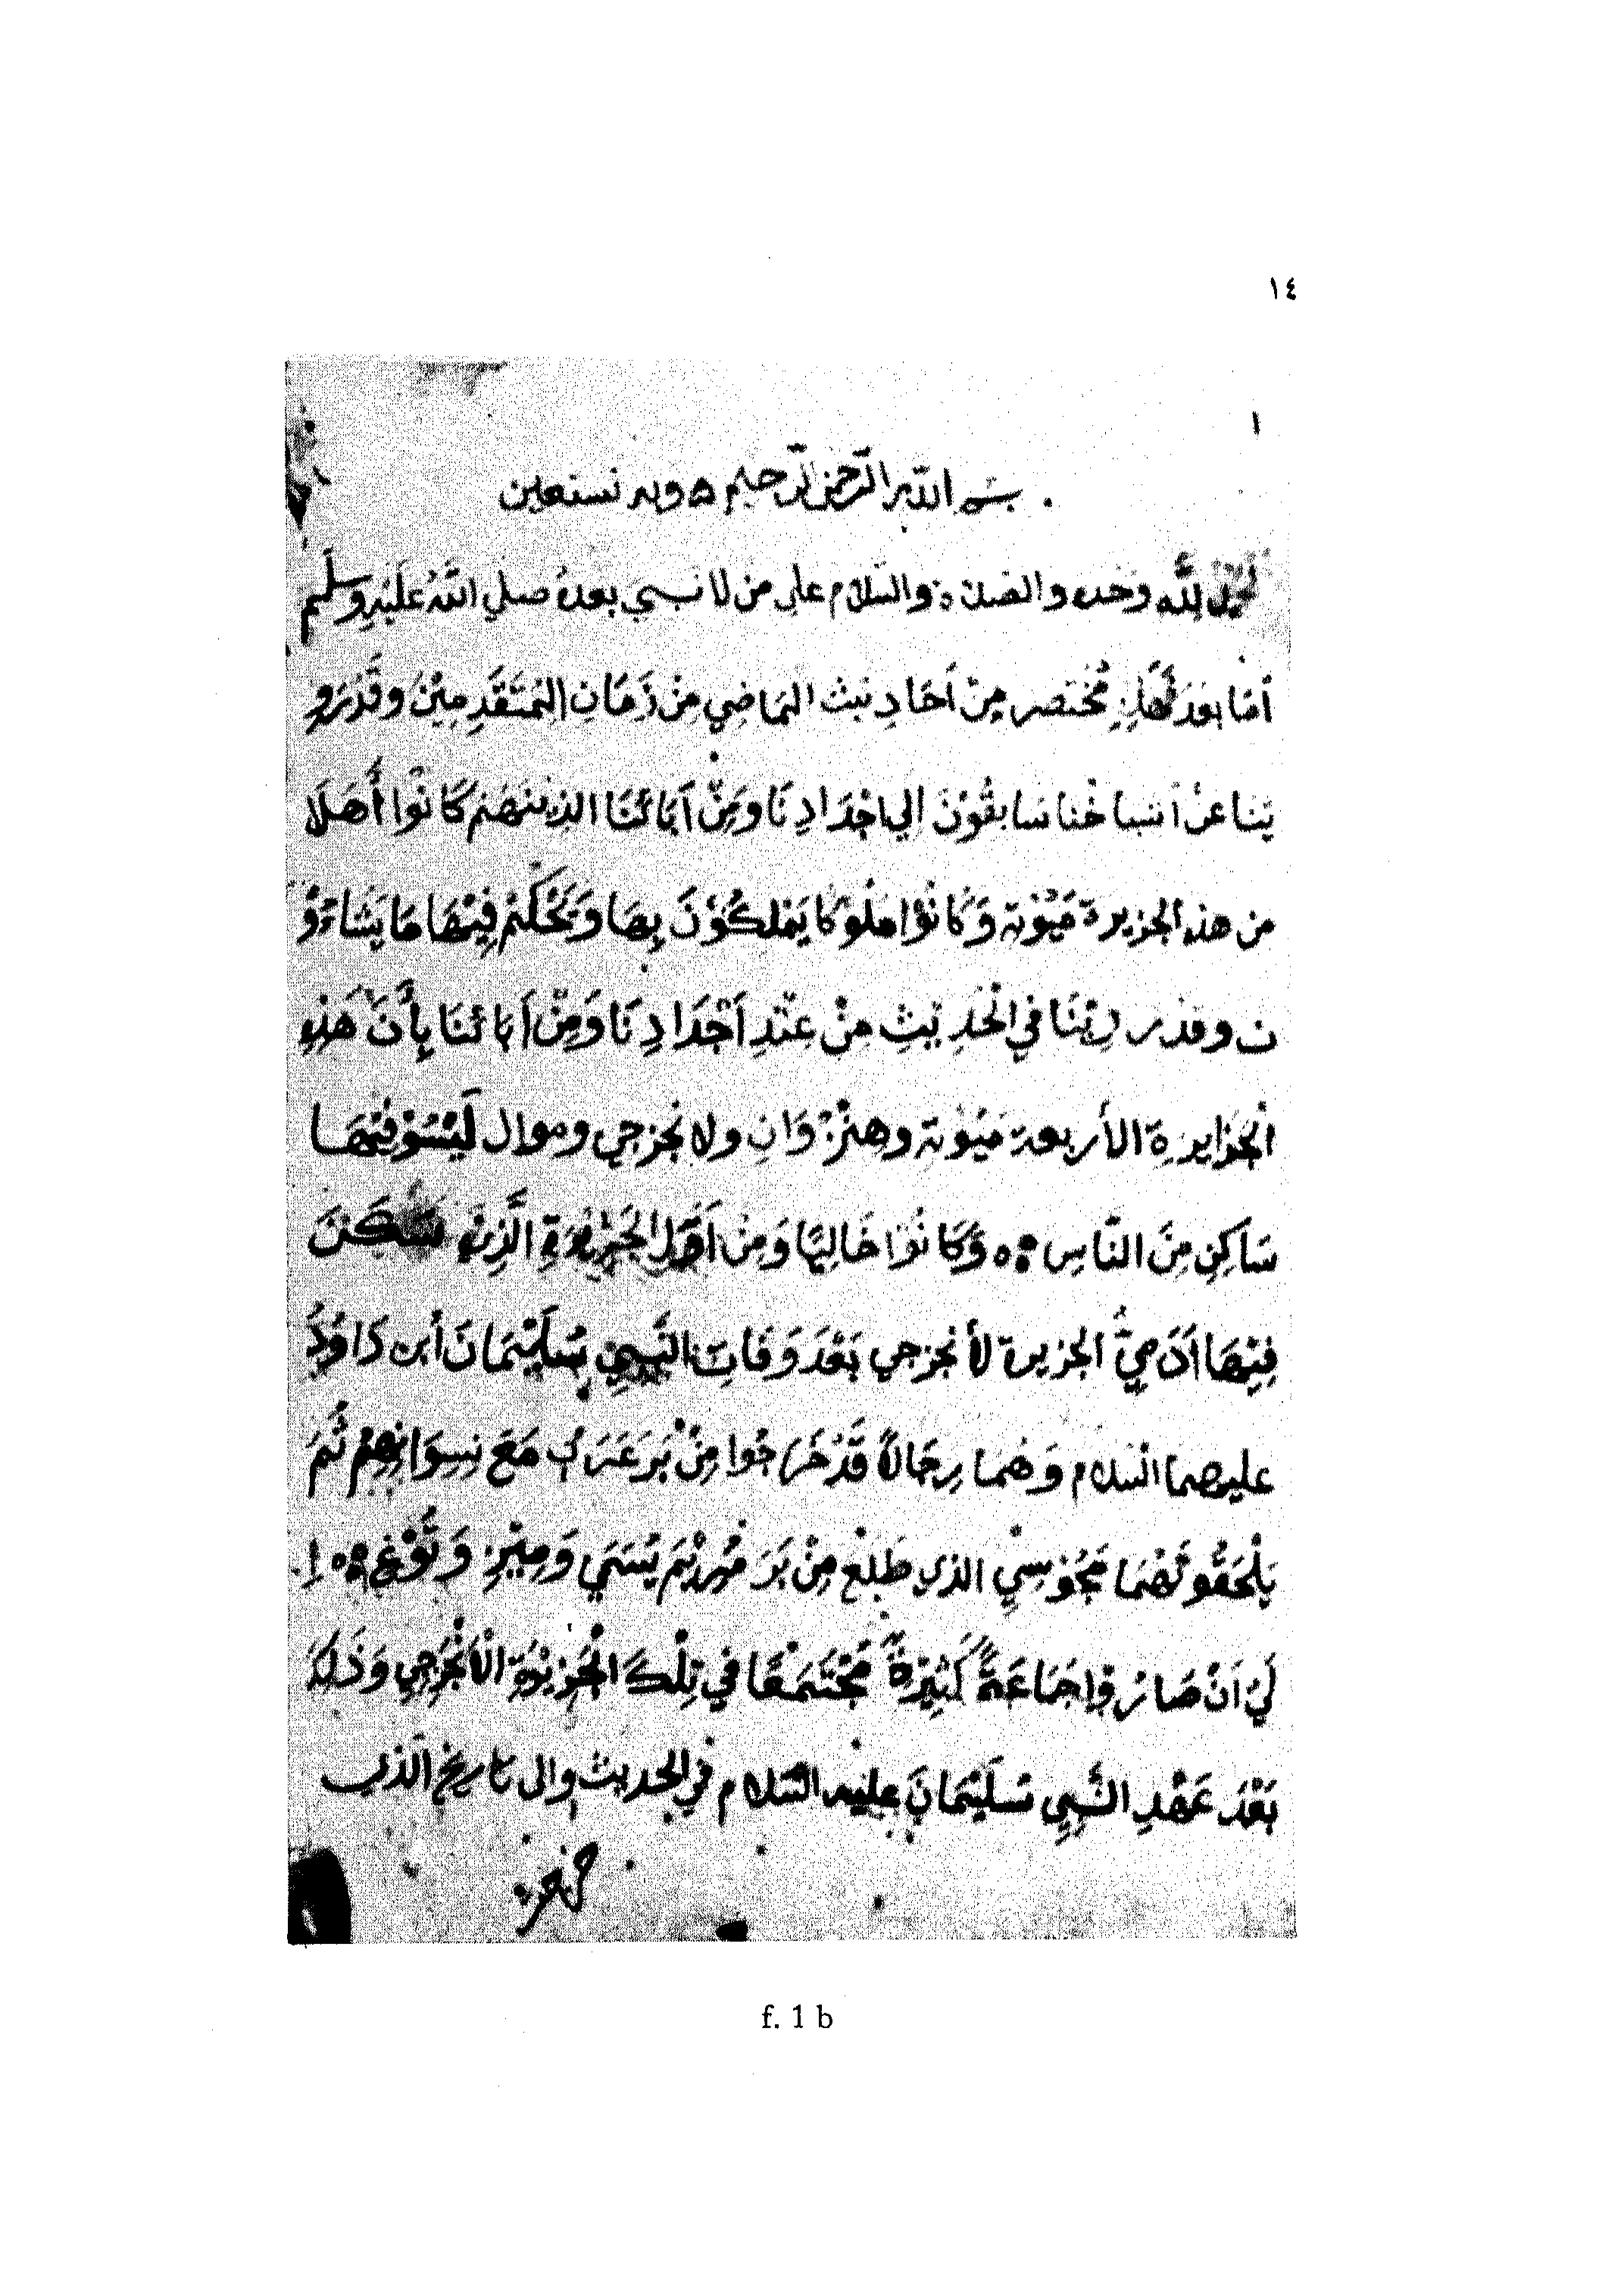 ١٤
١
بسم الله الرحمن الرحيم ه وبه نستعين
لله وحده والصلاة والسلام على من لا نبي بعده صلي الله عليه وسلم
أما بعد مختصر من أحاديث الماضي من زمان المتقدمين وقد رو
يناعن أشياخنا سابقون الي اجدادنا ومن آبائنا الذينهم كانوا أهلا
من هذه الجزيرة ميوتة وكانوا ملوكا يملكون بها ويحكم فيها ما يشاءو
ن وقد روينا في الحديث من عند أجدادنا ومن آبائنا بأن هذه
الجزايرة الأربعة ميوتة وهنزوان ولانجزجي وموال ليسو فيها
ساكن من الناس ه وكانوا خاليا ومن أهل الجزيرة الذي سكن
فيها أدمي الجزيرة لأنجزجي بعد وفات النبي سليمان أبن داود
عليهما السلام وهما رجالا قد خراجوا من بر عرب مع نسوانهم ثم
يلحقونهما مجوسي الذي طلع من بر يسمي ومينز وتوغ ه إ
لي أن صاروا جماعة كثيرة مجتمعا في تلك الجزيرة الانجزجي وذلك
بعد عهد النبي سليمان عليه السلام في الحديث والى تاريخ الذي
f. 1 b